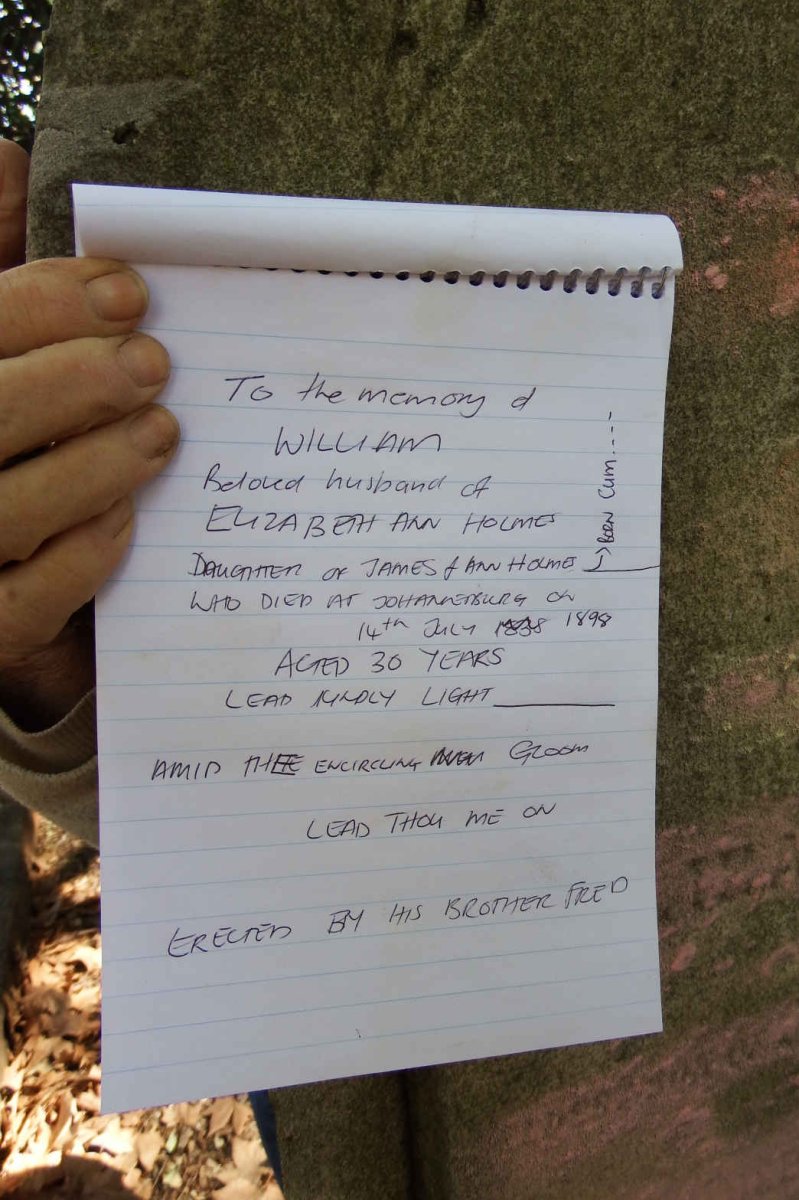 To the memory of
WILLIAM
Beloved husband of
ELIZABETH ANN HOLMES
DAUGHTER OF JAMES & ANN HOLMES
BORN CUM....
WHO DIED AT JOHANNESBURG ON
14th JULY 1898
AGED 30 YEARS
LEAD KINDLY LIGHT
AMID THE ENCIRCLING GLOOM
LEAD THOU ME ON
ERECTED BY HIS BROTHER FRED